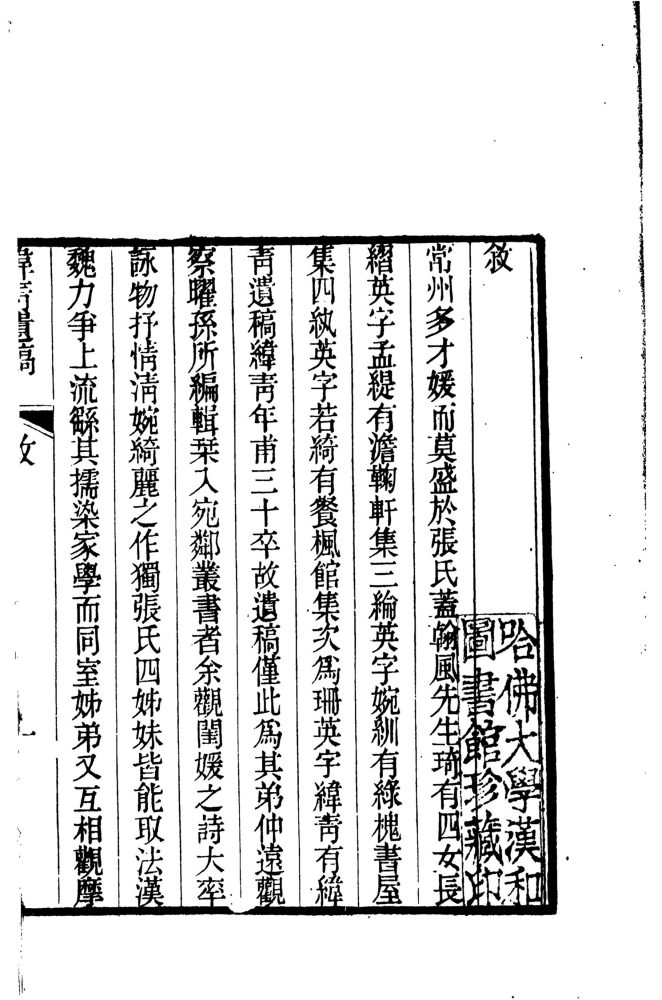 敘
常州多才媛而莫盛於張氏蓋翰風先生琦有四女長
縚英字孟緹有澹鞠軒集三綸英字婉紃有綠槐書屋
集四紈英字若綺有餐楓館集次爲珊英字緯靑有緯
靑遺稿緯靑年甫三十卒故遺稿僅此爲其弟仲遠觀
察曜孫所編輯栞入宛鄰叢書者余觀閨媛之詩大率
詠物抒情淸婉綺麗之作獨張氏四姊妹皆能取法漢
魏力爭上流繇其擩染家學而同室姊弟又互相觀摩
緯靑遺稿
敘
一
哈佛大學漢和
圖書館珍藏印